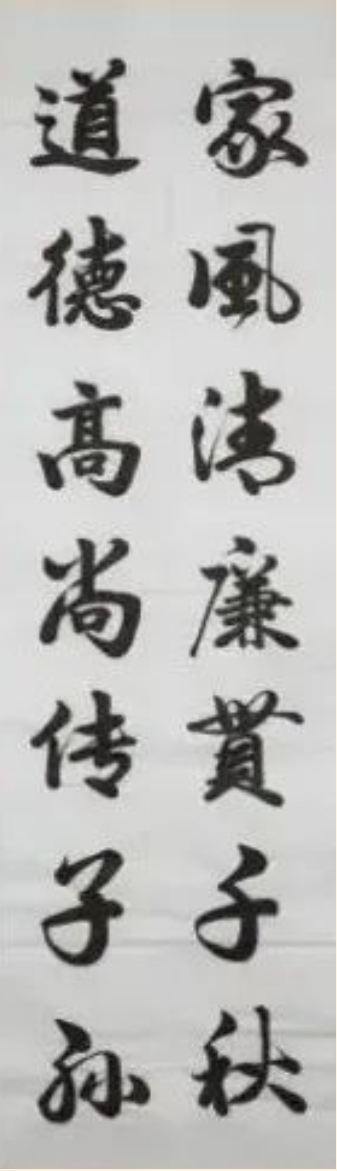 家風清廉貫千秋
道德高尚传子孙